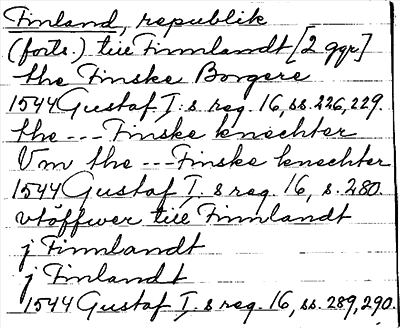 Finland, republik
(forts.) till Finnlandt [2 ggr]
the Finske Borgere
1544 Gustaf I:s reg. 16, ss. 226, 229.
the --- Finske knechter
Vm the --- Finske knechter
1544 Gustaf I:s reg. 16, s. 280.
vtöffwer till Finnlandt
j Finnlandt
j Finlandt
1544 Gustaf I:s reg. 16, ss. 289, 290.